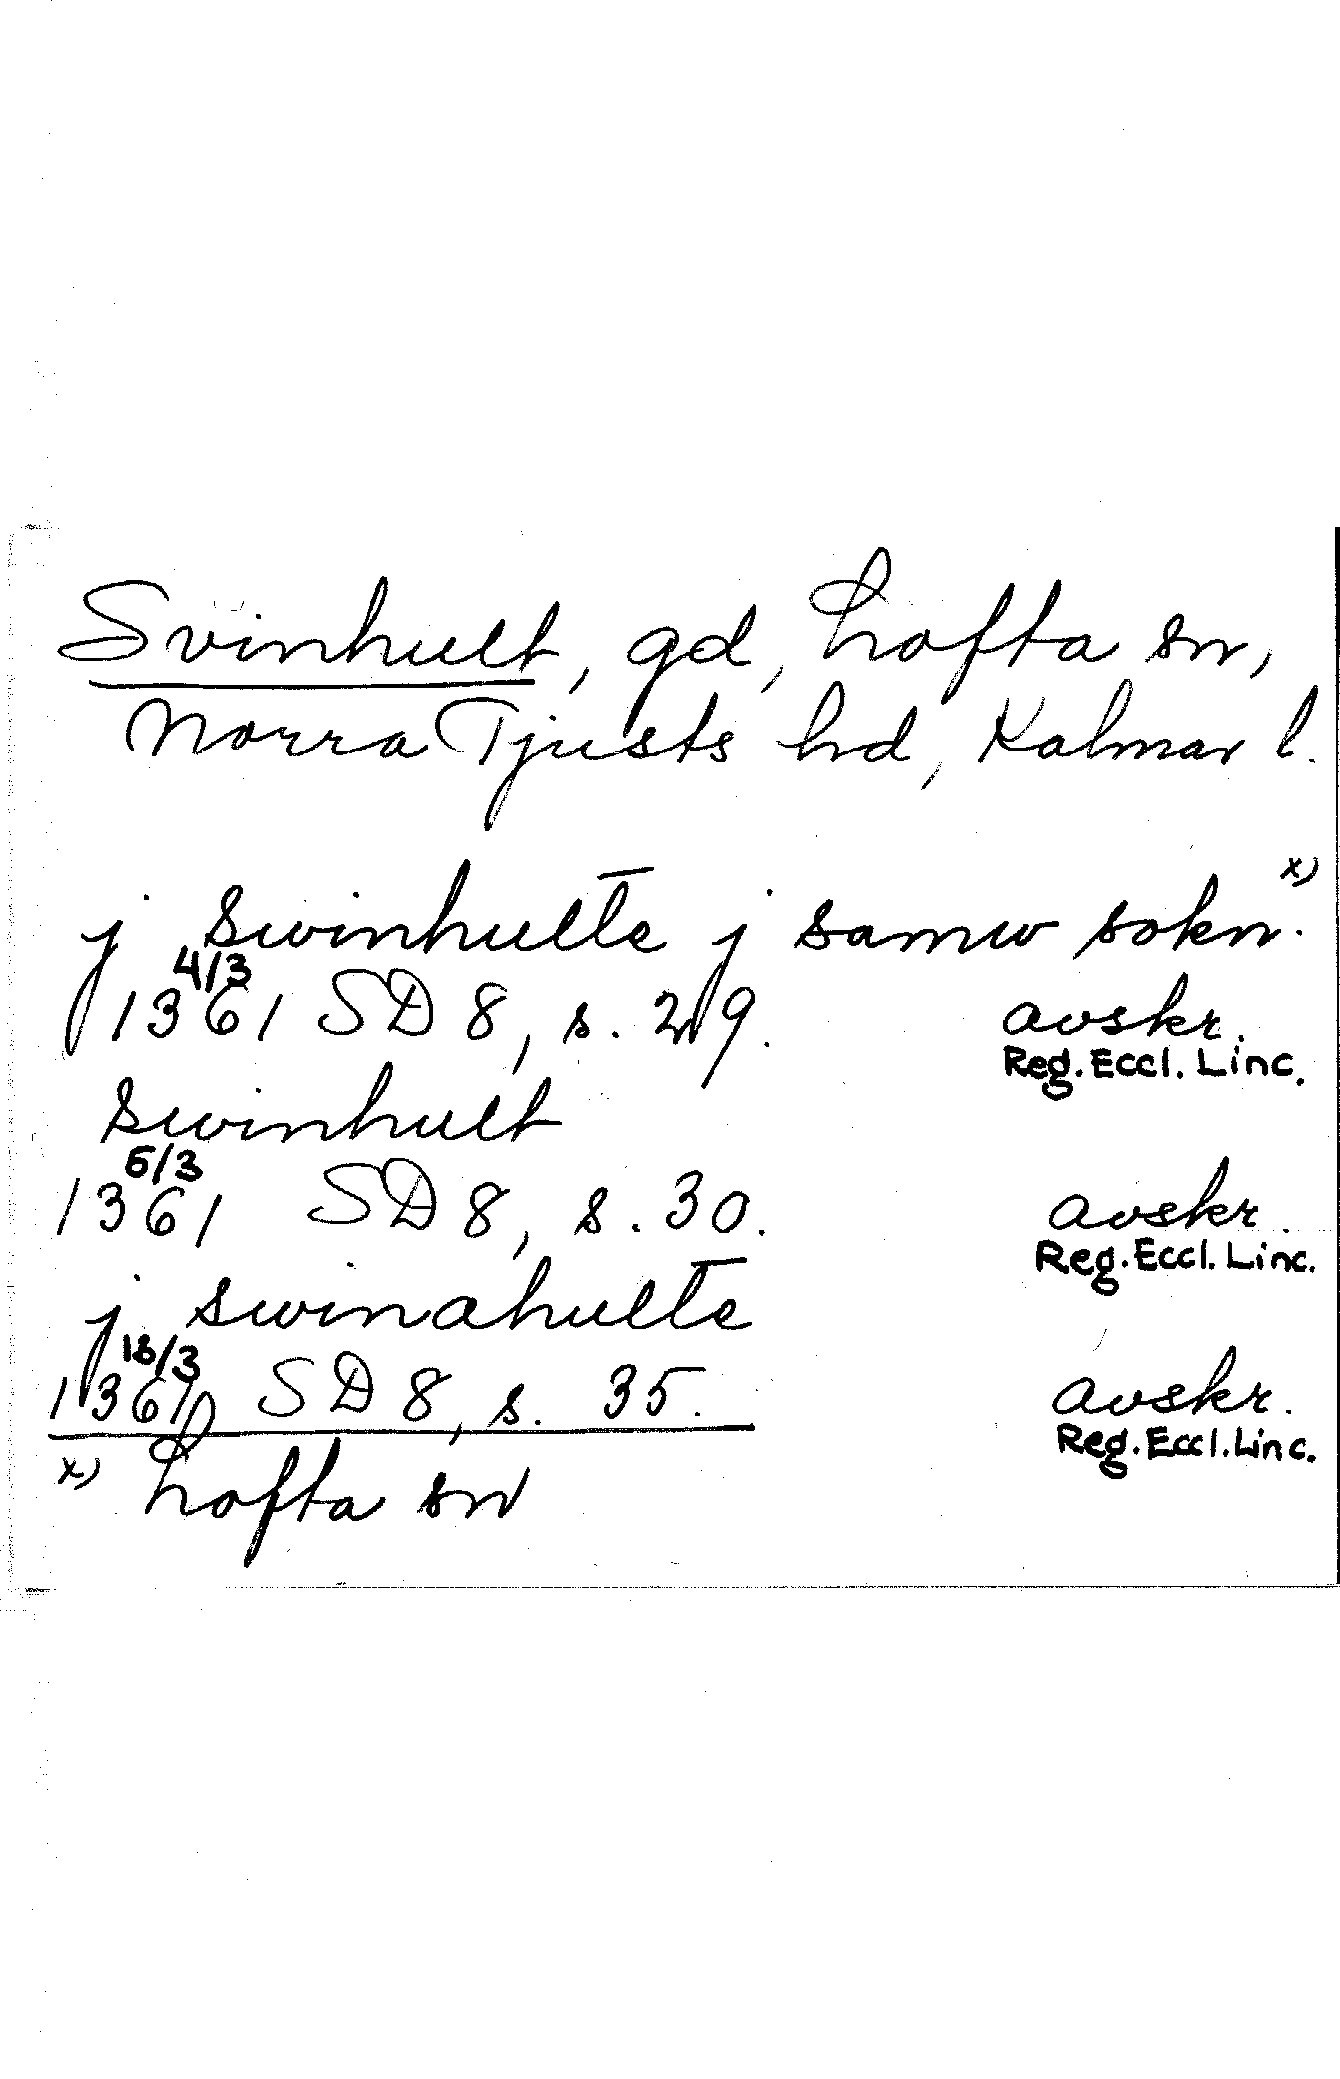 Svinhult, gd, Lofta sn,
Norra Tjusts hd, Kalmar l.
j swinhulte j samw sokn. x)
4/3
1361 SD 8, s. 29. avskr.
Reg. Eccl. Linc.
swinhult
5/3
1361 SD 8, s. 30. avskr.
Reg. Eccl. Linc.
j swinahulte
13/3
1361 SD 8, s. 35. avskr.
Reg. Eccl. Linc.
x) Lofta sn